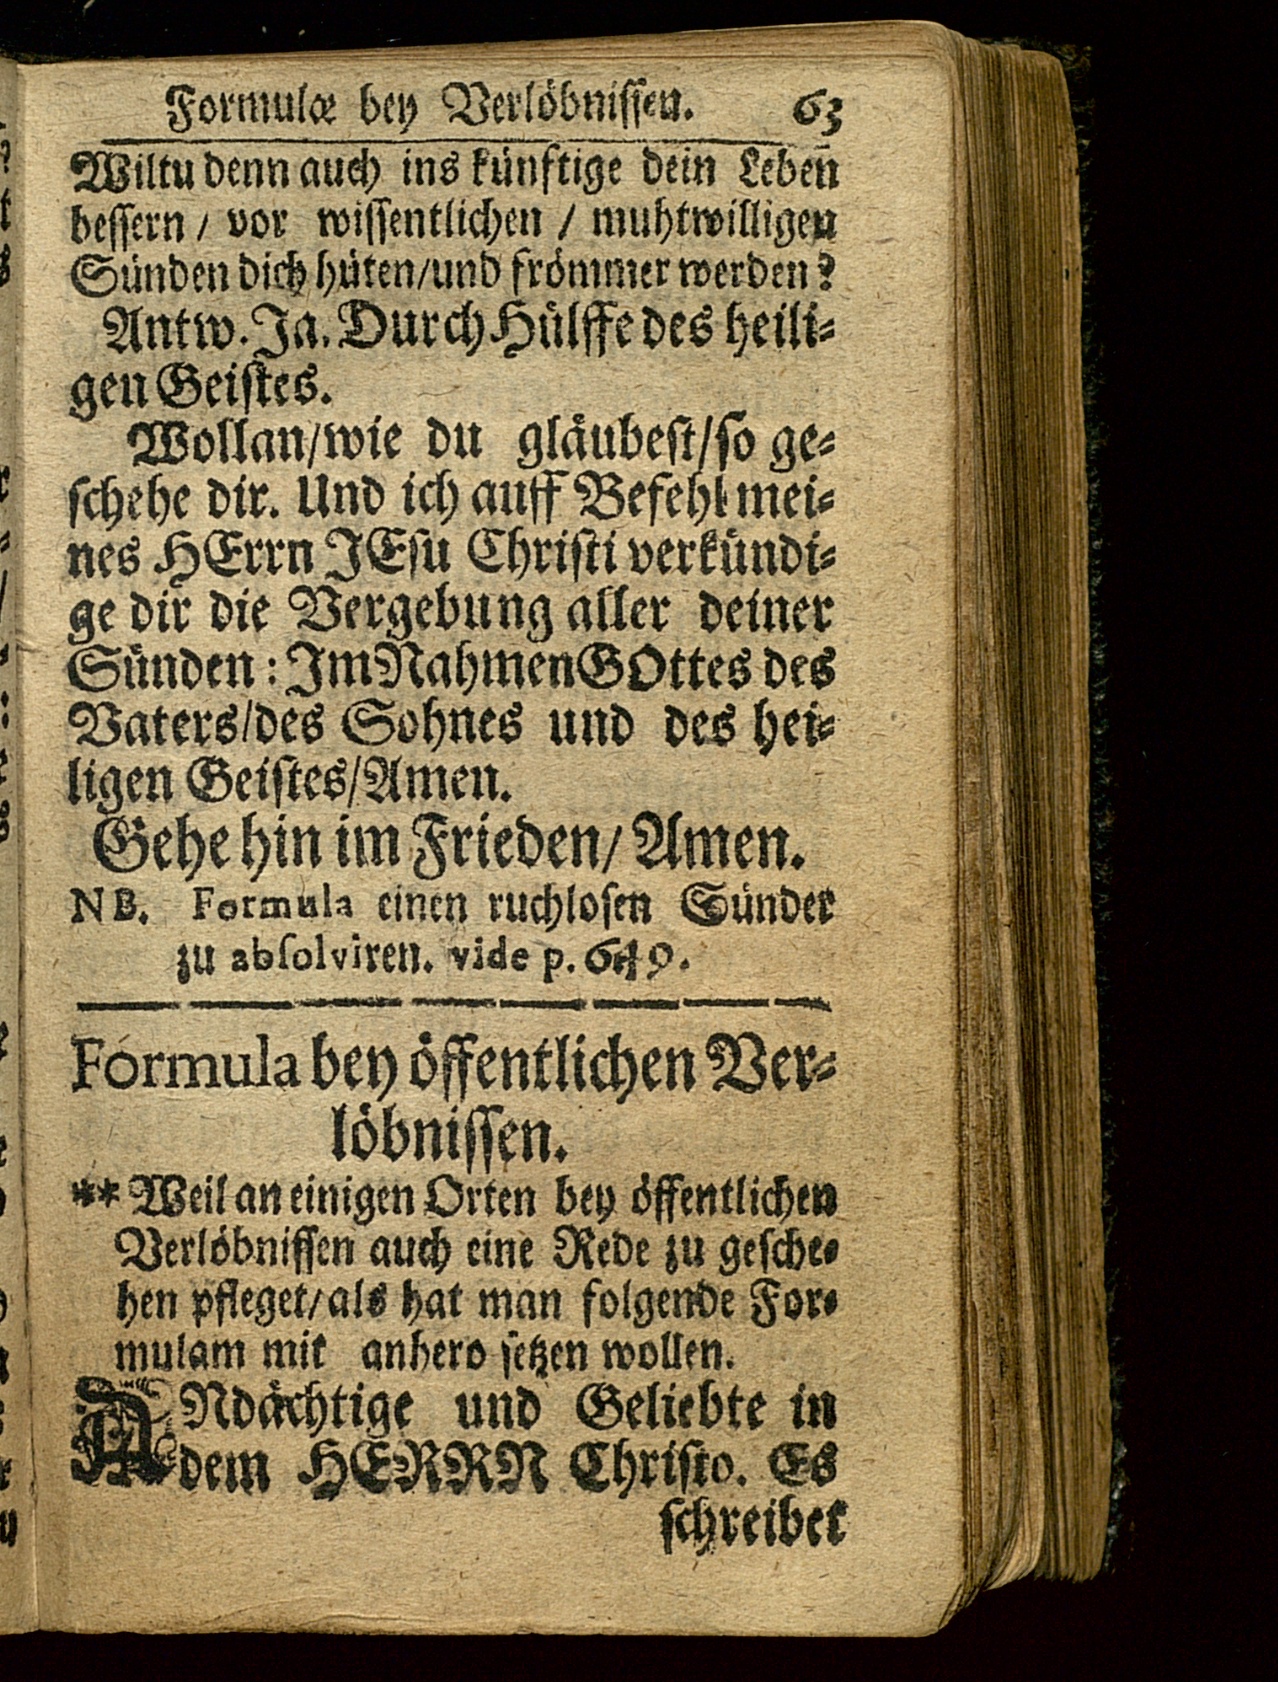 Formulæ bey Verlöbnissen. 63
Wiltu denn auch ins künftige dein Leben
bessern / vor wissentlichen / muhtwilligen
Sünden dich hüten/und frömmer werden?
Antw. Ja. Durch Hülffe des heili-
gen Geistes.
Wollan/wie du gläubest/so ge-
schehe dir. Und ich auff Befehl mei-
nes HErrn JEsu Christi verkündi-
ge dir die Vergebung aller deiner
Sünden: Im Nahmen GOttes des
Vaters/des Sohnes und des hei-
ligen Geistes/Amen.
Gehe hin im Frieden/ Amen.
NB. Formula einen ruchlosen Sünder
zu absolviren. vide p. 649.
Formula bey öffentlichen Ver-
löbnissen.
** Weil an einigen Orten bey öffentlichen
Verlöbnissen auch eine Rede zu gesche-
hen pfleget/als hat man folgende For-
mulam mit anhero setzen wollen.
ANdächtige und Geliebte in
dem HERRN Christo. Es
schreibet